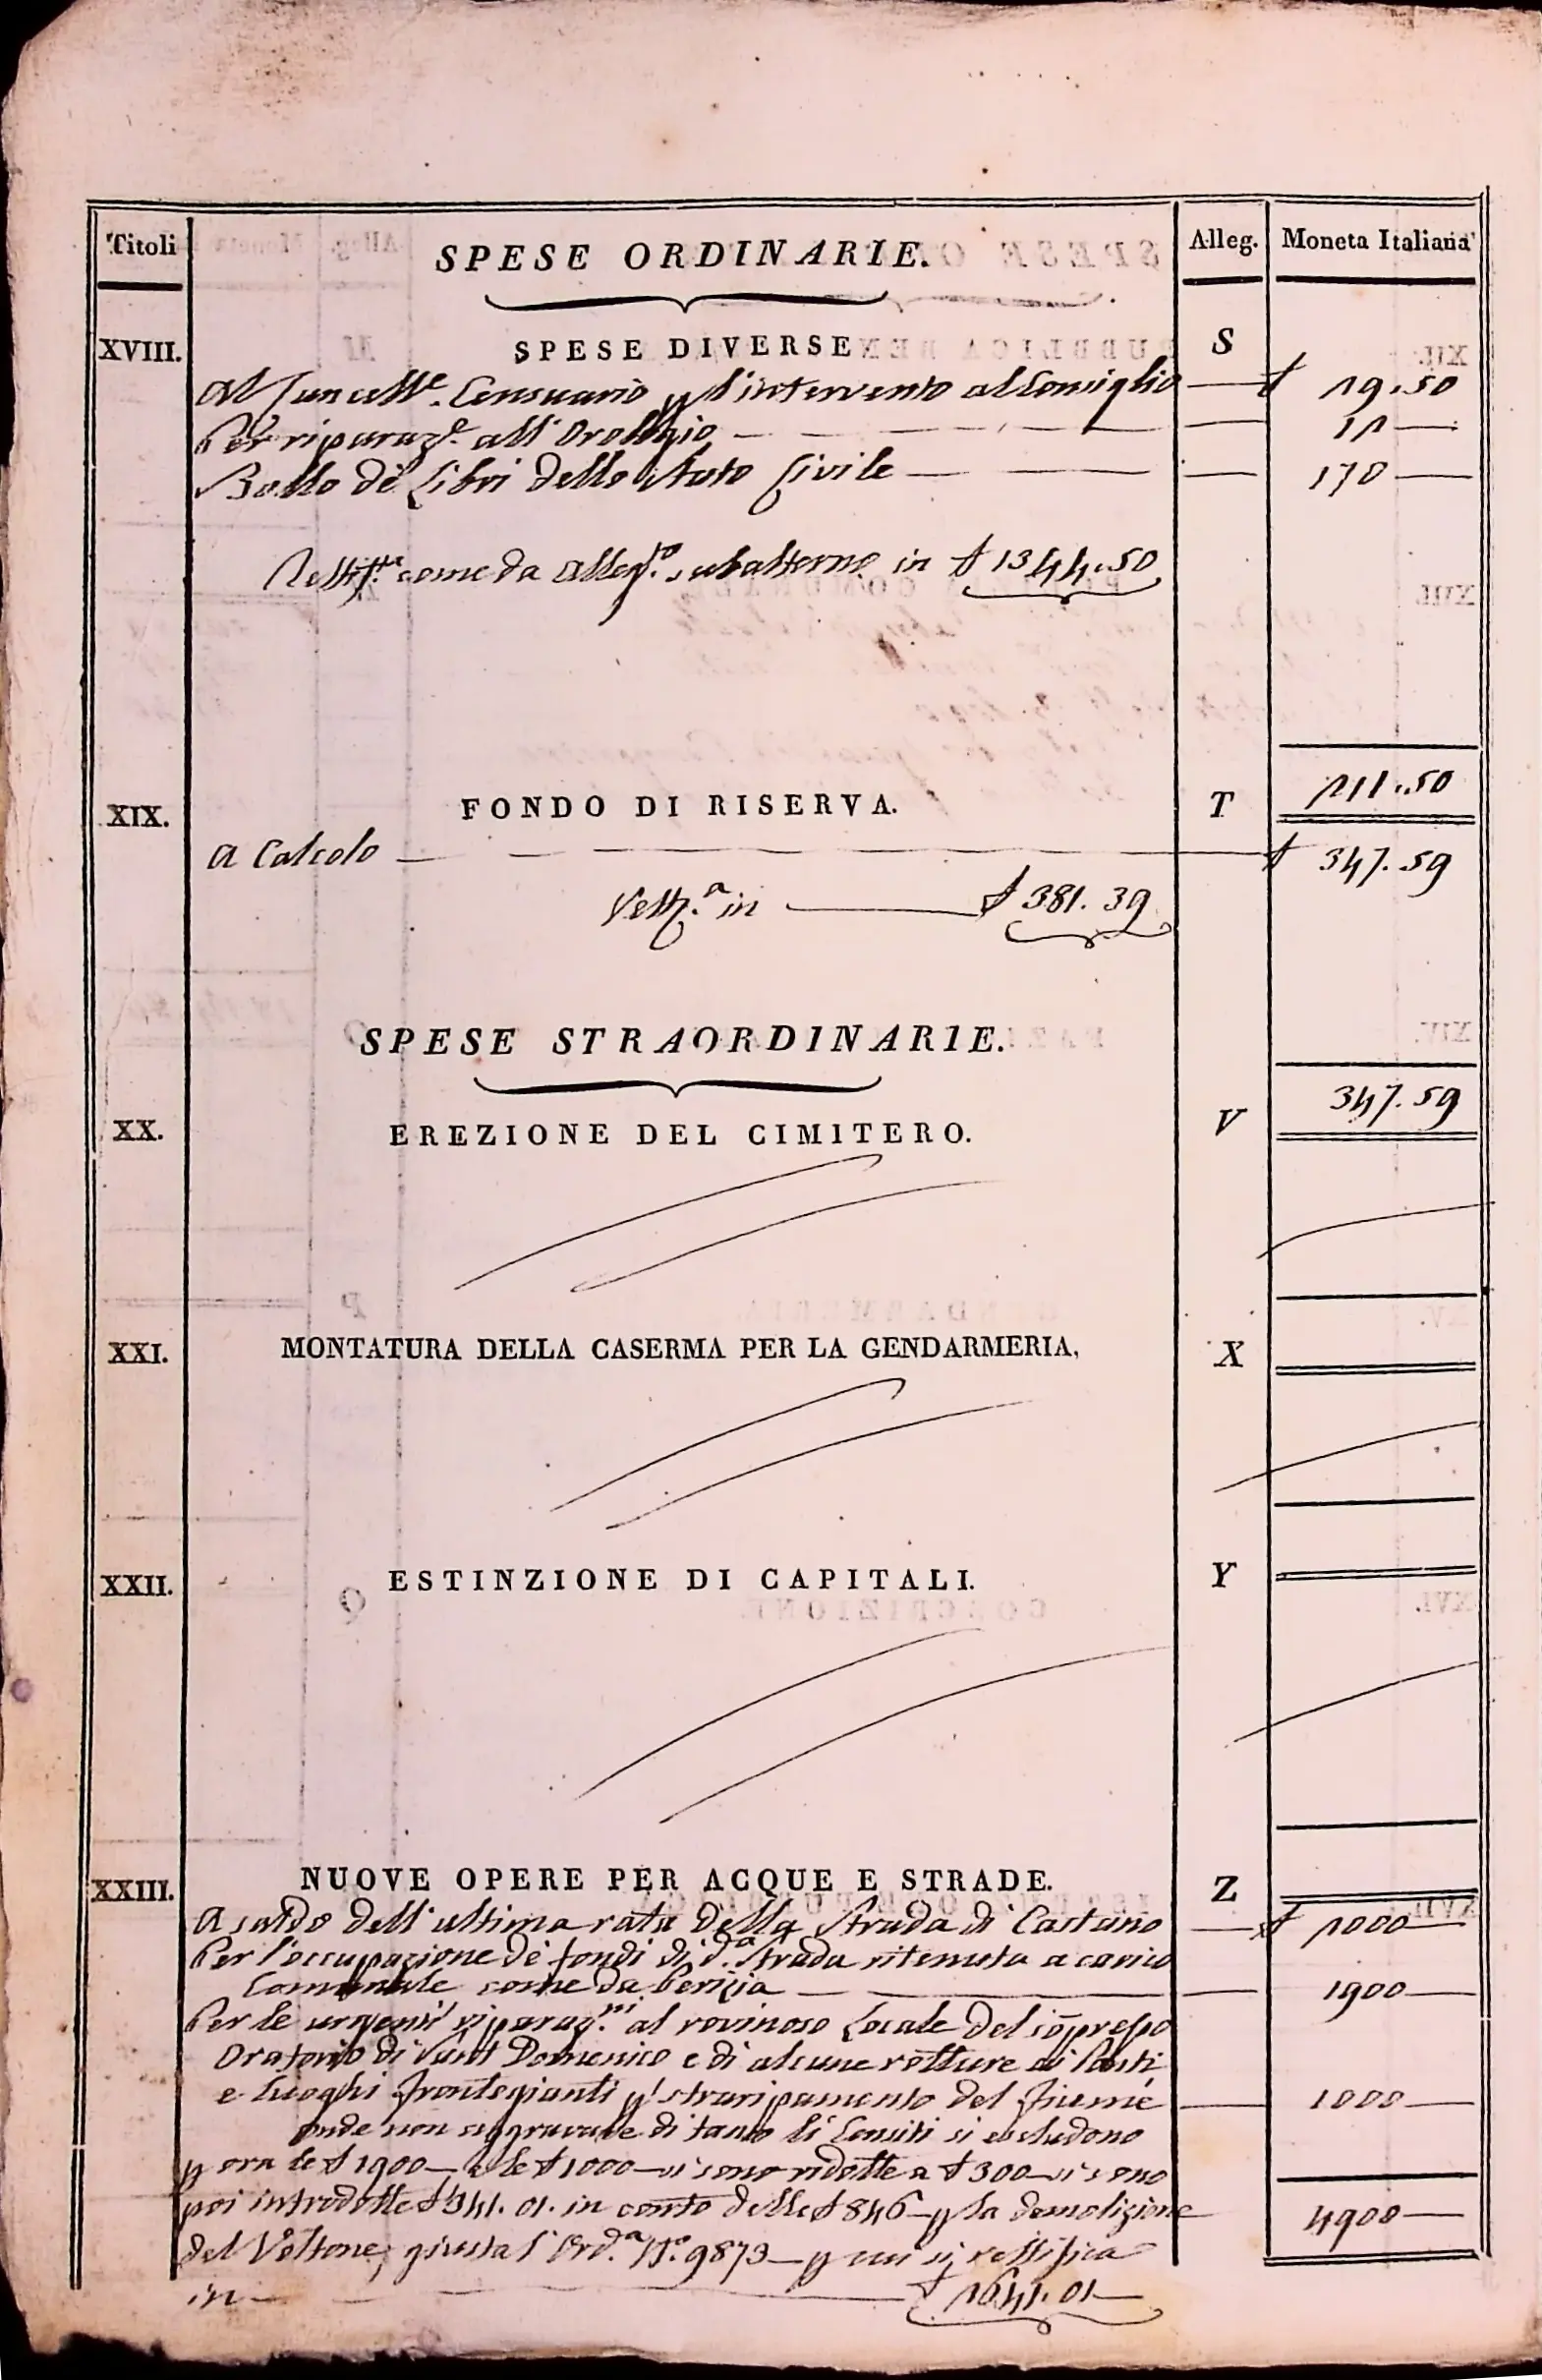 Titoli SPESE ORDINARIE. Alleg. Moneta Italiana
XVIII. SPESE DIVERSE S
Al Cancell.e Censuario p l'intervento al Consiglio £ 19.50
Per riparaz.e all'Orologio
Bollo de Libri dello Stato Civile 170
Rettif.te come da alleg.to subalterno in £ 1344.50
211.50
XIX. FONDO DI RISERVA. T
A Calcolo £ 347.59
Rettif.a in £ 381.39
SPESE STRAORDINARIE.
347.59
XX. EREZIONE DEL CIMITERO. V
XXI. MONTATURA DELLA CASERMA PER LA GENDARMERIA, X
XXII. ESTINZIONE DI CAPITALI. Y
XXIII. NUOVE OPERE PER ACQUE E STRADE. Z
A saldo dell'ultima rata della Strada di Castano £ 1000
Per l'occupazione de fondi di d.a Strada ritenuta a carico
Comunale come da Perizia 1900
Per le urgenti riparaz.ni al rovinoso Locale del soppresso
Oratorio di Sant Domenico e di alcune rotture ai Ponti
e Luoghi frontegianti p straripamento del Fiume 1000
onde non aggravare di tanto li Censiti si escludono
p ora le £ 1900 e le £ 1000 si sono ridotte a £ 300 si sono
poi introdotte £ 341.01. in conto delle £ 846 p la demolizione
4900
del Voltone, giusta l'Ord.a N.o 9873 p cui si rettifica
in £ 1641.01